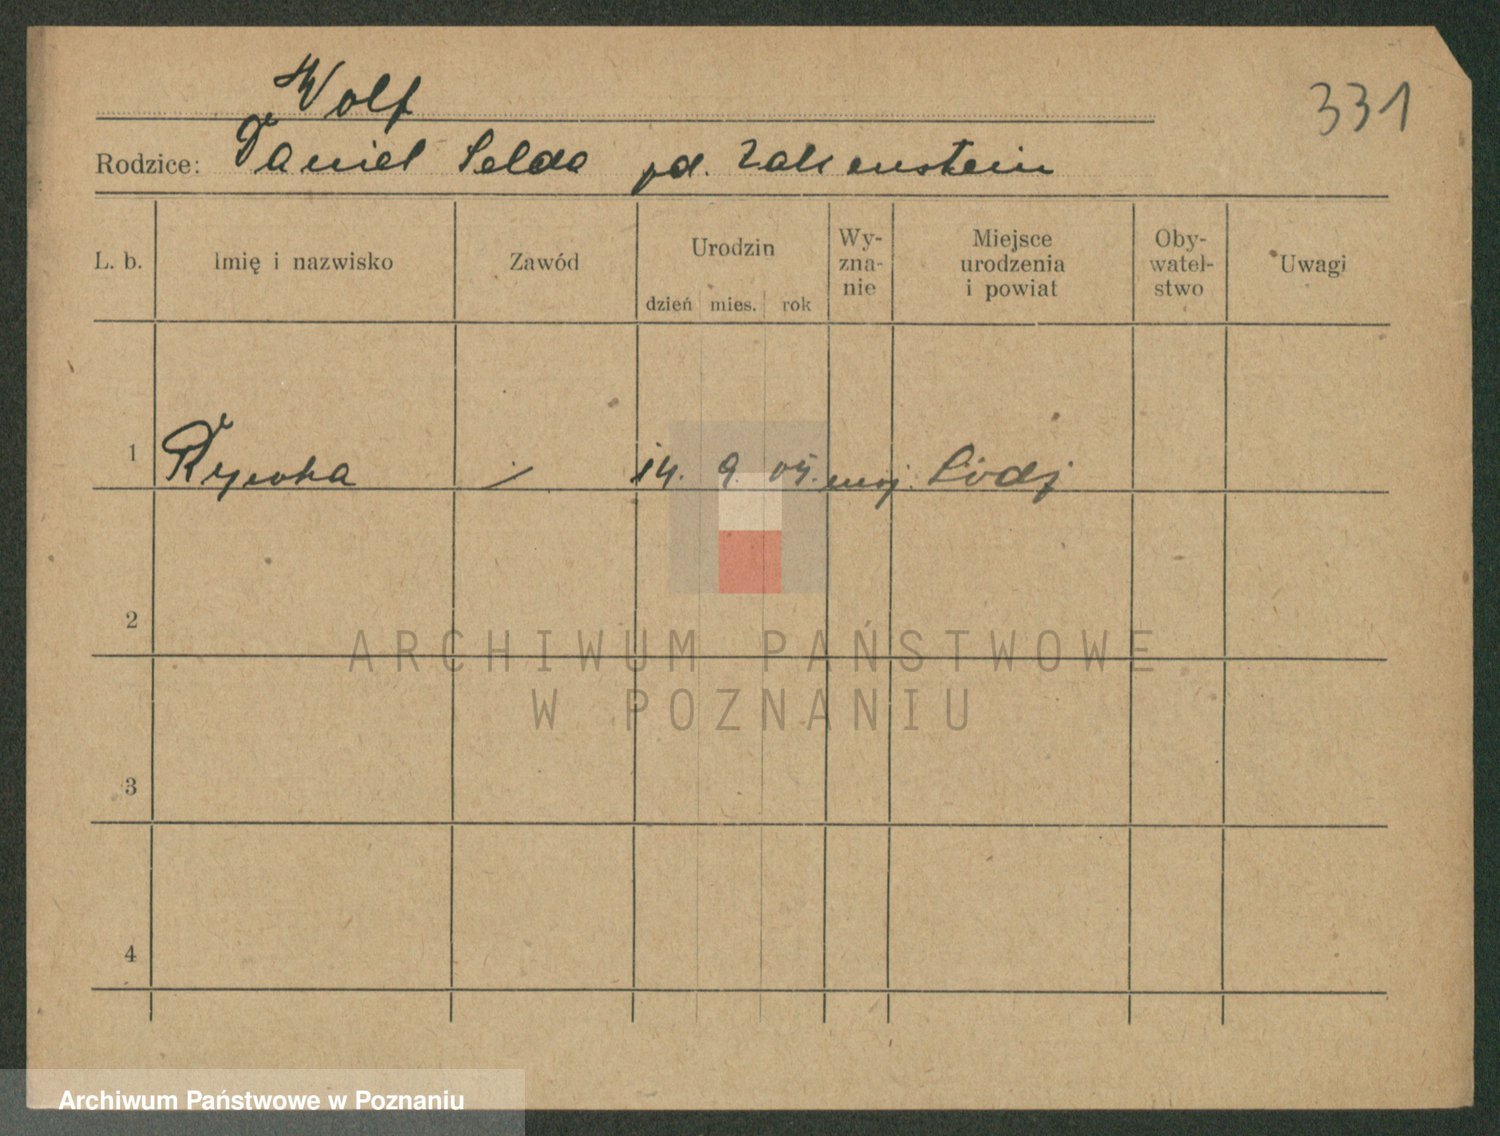 Wolf
331
Rodzice: Daniel Selda pd. Zalsenstein
L. b. Imię i nazwisko Zawód Urodzin Wy-zna-nie Miejsce urodzenia i powiat Oby-watel-stwo Uwagi
dzień mies. rok
1 Rywka 14. 9. 05. moj. Łódź
2
3
4
ARCHIWUM PAŃSTWOWE
W POZNANIU
Archiwum Państwowe w Poznaniu